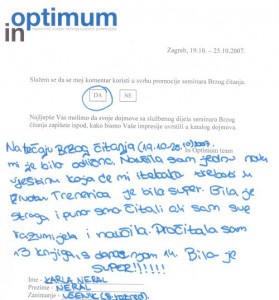 in optimum
Zagreb, 19.10. - 25.10.2007.
Slažem se da se moj komentar koristi u svrhu promocije seminara Brzog čitanja.
DA NE
Najljepše Vas molimo da svoje dojmove sa službenog dijela seminara Brzog
čitanja zapišete ispod, kako bismo Vaše impresije uvrstili u katalog dojmova
In Optimum team
Na tečaju Brzog čitanja (19.10-25.10)2007.
mi je bilo odlično. Naučila sam jednu novu
vještinu koja će mi itekako trebati u
životu. Trenerica je bila super. Bila je
stroga i puno smo čitali ali sam sve
razumijela i naučila. Pročitala sam
13 knjiga s današnjom 14. Bila je
SUPER!!!!!!
Ime - KARLA NERAL
Prezime - NERAL
Zanimanje - UČENIK